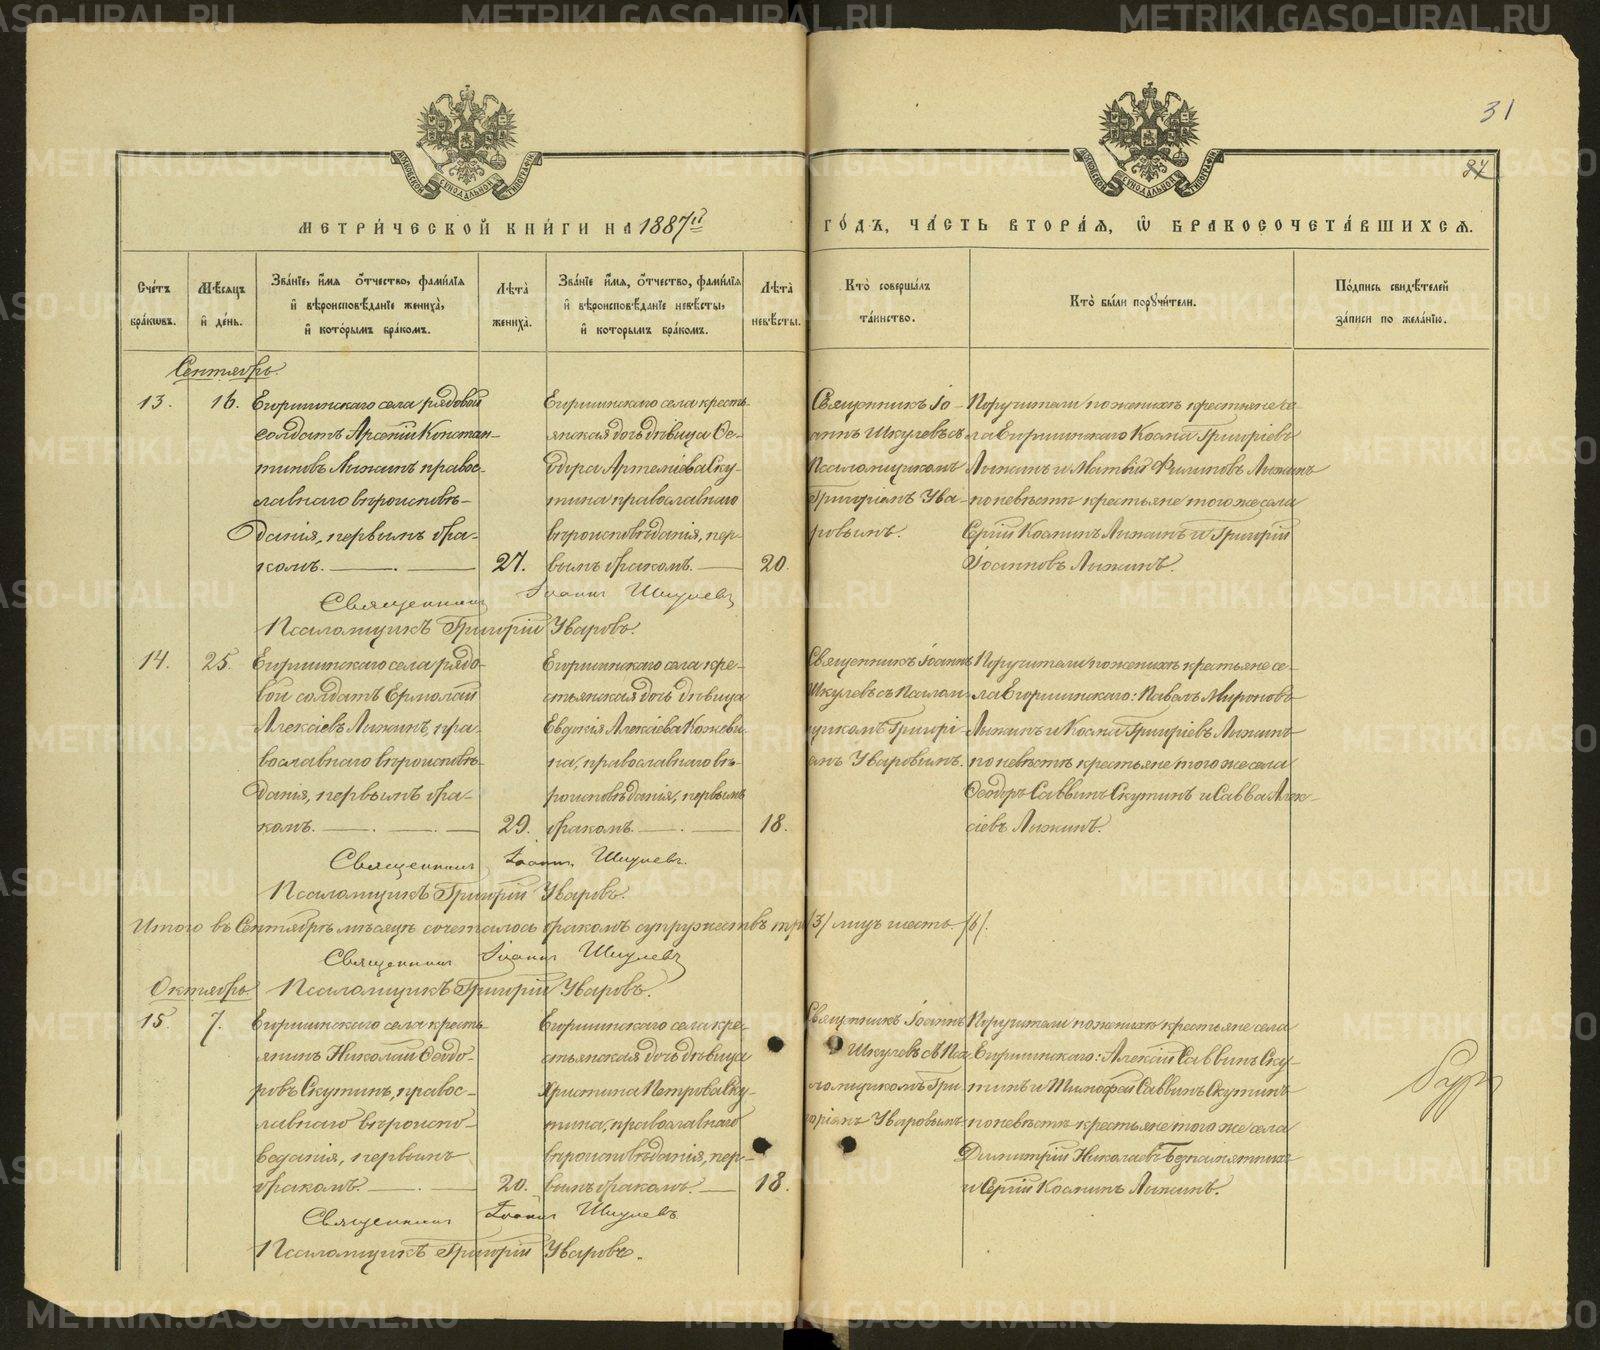 31
27
МЕТРИ́ЧЕСКОЙ КНИ́ГИ НА 1887й ГО́ДЪ, ЧА́СТЬ ВТОРА́Я, Ѡ БРАКОСОЧЕТА́ВШИХСЯ.
Сче́тъ бра́кѡвъ.
Мѣ́сяцъ и де́нь.
Зва́нїе, и́мя о́тчество, фами́лїя и вѣроисповѣ́данїе жениха̀, и кото́рымъ бра́комъ.
Лѣ́та жениха̀.
Зва́нїе и́мя, о́тчество, фами́лїя и вѣроисповѣ́данїе невѣ́сты, и которымъ бра́комъ.
Лѣ́та невѣ́сты.
Кто̀ соверша́лъ та́инство.
Кто̀ бы́ли поручи́тели.
По́дпись свидѣ́телей за́писи по жела́нїю.
Сентябрь.
13.
16.
Егоршинскаго села рядовой
солдатъ Арсеній Констан-
тиновъ Лыжинъ правос-
лавнаго вѣроисповѣ-
данія, первымъ бра-
комъ.
27.
Егоршинскаго села кресть-
янская дочь дѣвица Ѳе-
одора Артеміева Ску-
тина православнаго
вѣроисповѣданія, пер-
вымъ бракомъ.
20.
Священникъ Іо-
аннъ Шкулевъ съ
Псаломщикомъ
Григоріемъ Ува-
ровымъ.
Поручители по женихѣ крестьяне се-
ла Егоршинскаго Косма Григоріевъ
Лыжинъ и Матвѣй Филиповъ Лыжинъ
по невѣстѣ крестьяне того же села
Сергій Косминъ Лыжинъ и Григорій
Іоанновъ Лыжинъ.
Священникъ Іоаннъ Шкулевъ
Псаломщикъ Григорій Уваровъ.
14.
25.
Егоршинскаго села рядо-
вой солдатъ Ермолай
Алексіевъ Лыжинъ, пра-
вославнаго вѣроисповѣ-
данія, первымъ бра-
комъ.
29.
Егоршинскаго села кре-
стьянская дочь дѣвица
Евдокія Алексіева Кожеви-
на, православнаго вѣ-
роисповѣданія, первымъ
бракомъ.
18.
Священникъ Іоаннъ
Шкулевъ съ Псалом-
щикомъ Григорі-
емъ Уваровымъ.
Поручители по женихѣ крестьяне се-
ла Егоршинскаго: Павелъ Мироновъ
Лыжинъ и Косма Григоріевъ Лыжинъ
по невѣстѣ крестьяне того же села
Ѳеодоръ Саввинъ Скутинъ и Савва Алек-
сіевъ Лыжинъ.
Священникъ Іоаннъ Шкулевъ.
Псаломщикъ Григорій Уваровъ.
Итого въ Сентябрѣ мѣсяцѣ сочеталось бракомъ супружествъ три /3/ лицъ шесть /6/.
Священникъ Іоаннъ Шкулевъ
Октябрь. Псаломщикъ Григорій Уваровъ.
15.
7.
Егоршинскаго села кресть-
янинъ Николай Ѳеодо-
ровъ Скутинъ, правос-
лавнаго вѣроиспо-
веданія, первымъ
бракомъ.
20.
Егоршинскаго села кре-
стьянская дочь дѣвица
Христина Петрова Ску-
тина, православнаго
вѣроисповѣданія, пер-
вымъ бракомъ.
18.
Священникъ Іоаннъ
Шкулевъ съ Пса-
ломщикомъ Гри-
горіемъ Уваровымъ
Поручители по женихѣ крестьяне села
Егоршинскаго: Алексій Саввинъ Ску-
тинъ и Тимофей Саввинъ Скутинъ
по невѣстѣ крестьяне того же села
Димитрій Николаевъ Безпамятныхъ
и Сергій Косминъ Лыжинъ.
Священникъ Іоаннъ Шкулевъ
Псаломщикъ Григорій Уваровъ.
METRIKI.GASO-URAL.RU